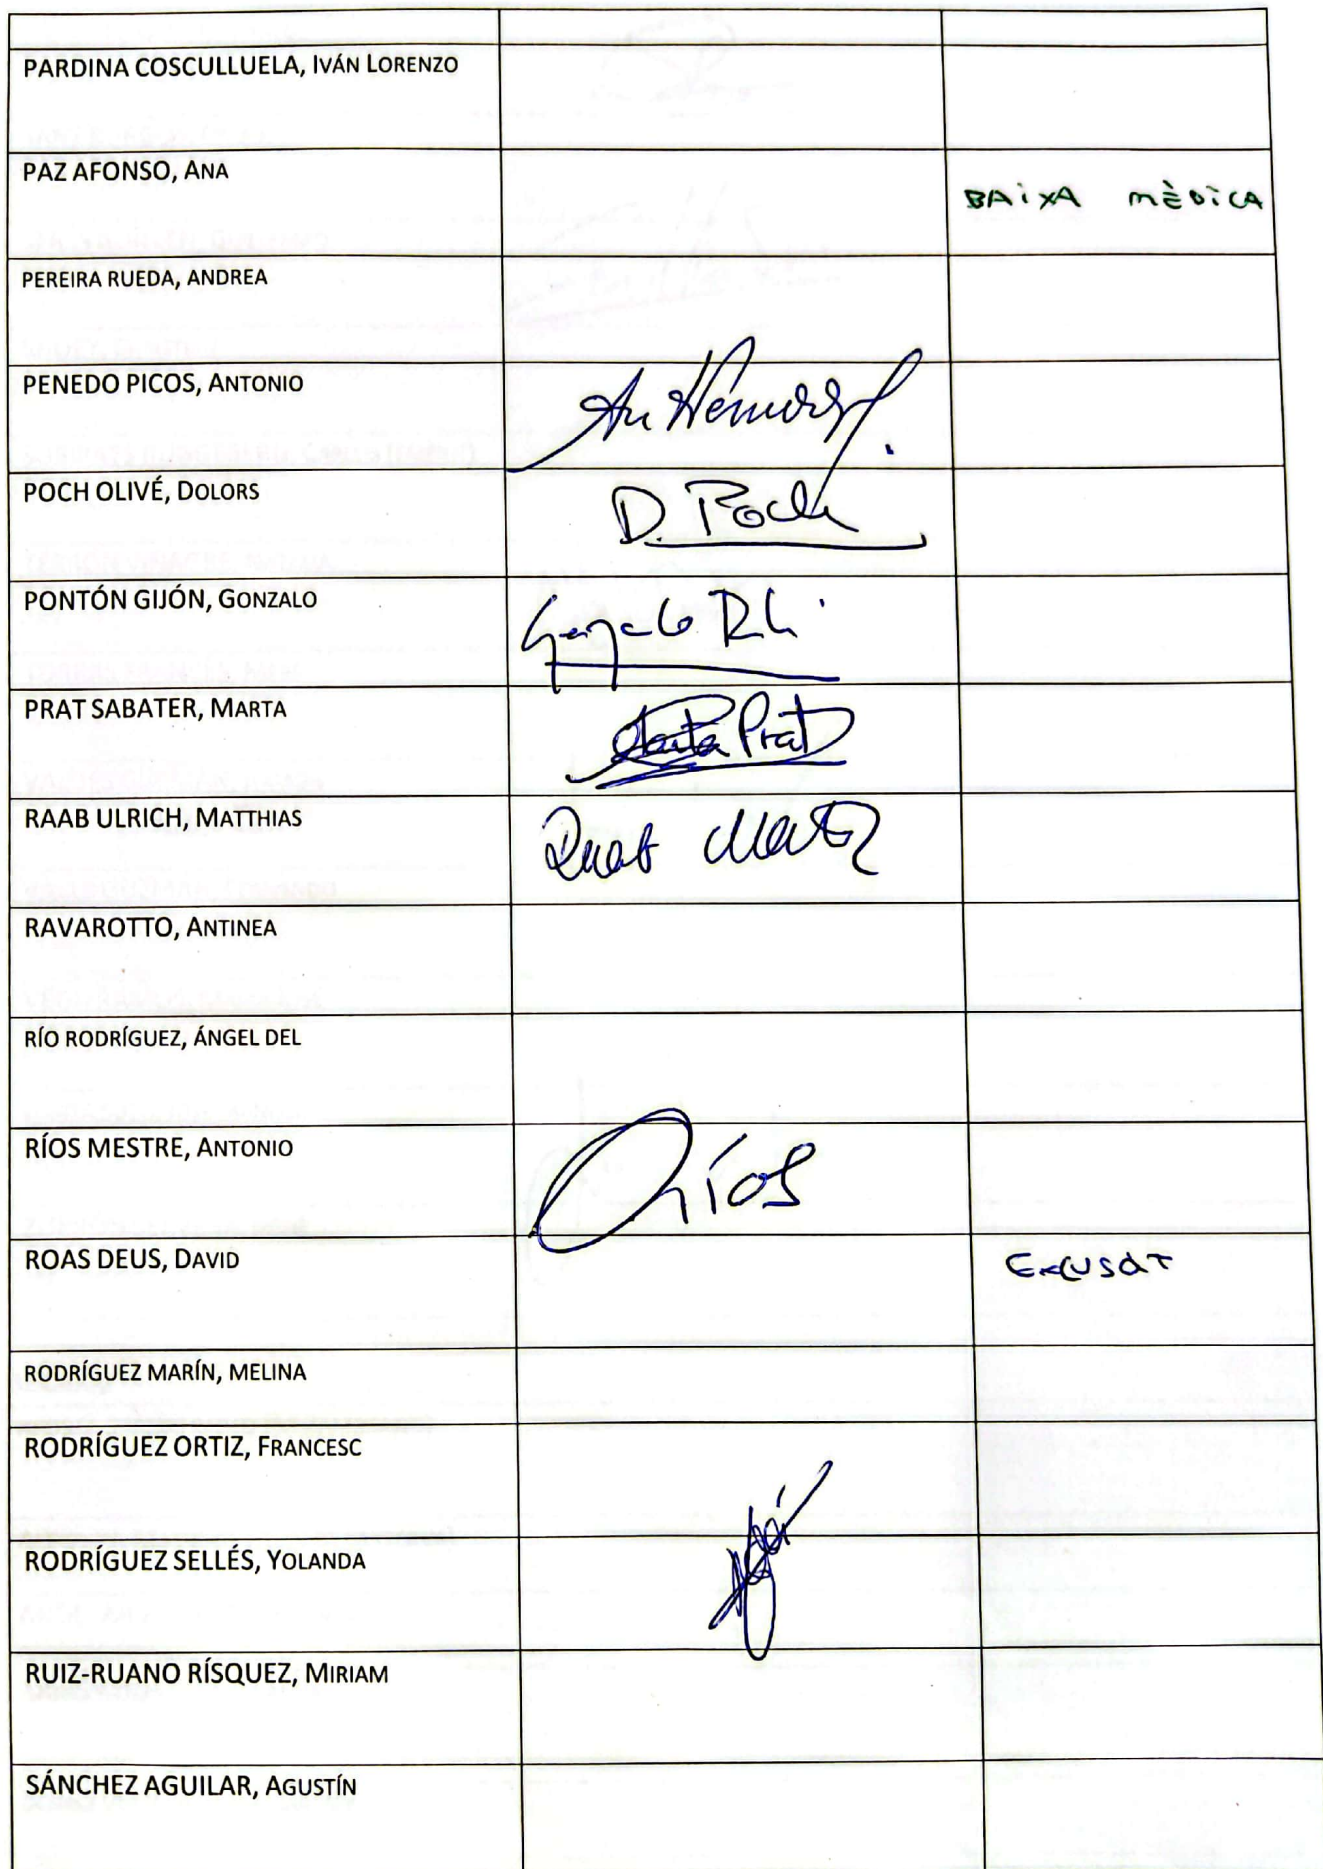 PARDINA COSCULLUELA, IVÁN LORENZO
PAZ AFONSO, ANA
BAIXA MÈDICA
PEREIRA RUEDA, ANDREA
PENEDO PICOS, ANTONIO
POCH OLIVÉ, DOLORS
D. Poch
PONTÓN GIJÓN, GONZALO
Gonzalo
PRAT SABATER, MARTA
Marta Prat
RAAB ULRICH, MATTHIAS
RAVAROTTO, ANTINEA
RÍO RODRÍGUEZ, ÁNGEL DEL
RÍOS MESTRE, ANTONIO
Ríos
ROAS DEUS, DAVID
EXCUSAT
RODRÍGUEZ MARÍN, MELINA
RODRÍGUEZ ORTIZ, FRANCESC
RODRÍGUEZ SELLÉS, YOLANDA
RUIZ-RUANO RÍSQUEZ, MIRIAM
SÁNCHEZ AGUILAR, AGUSTÍN